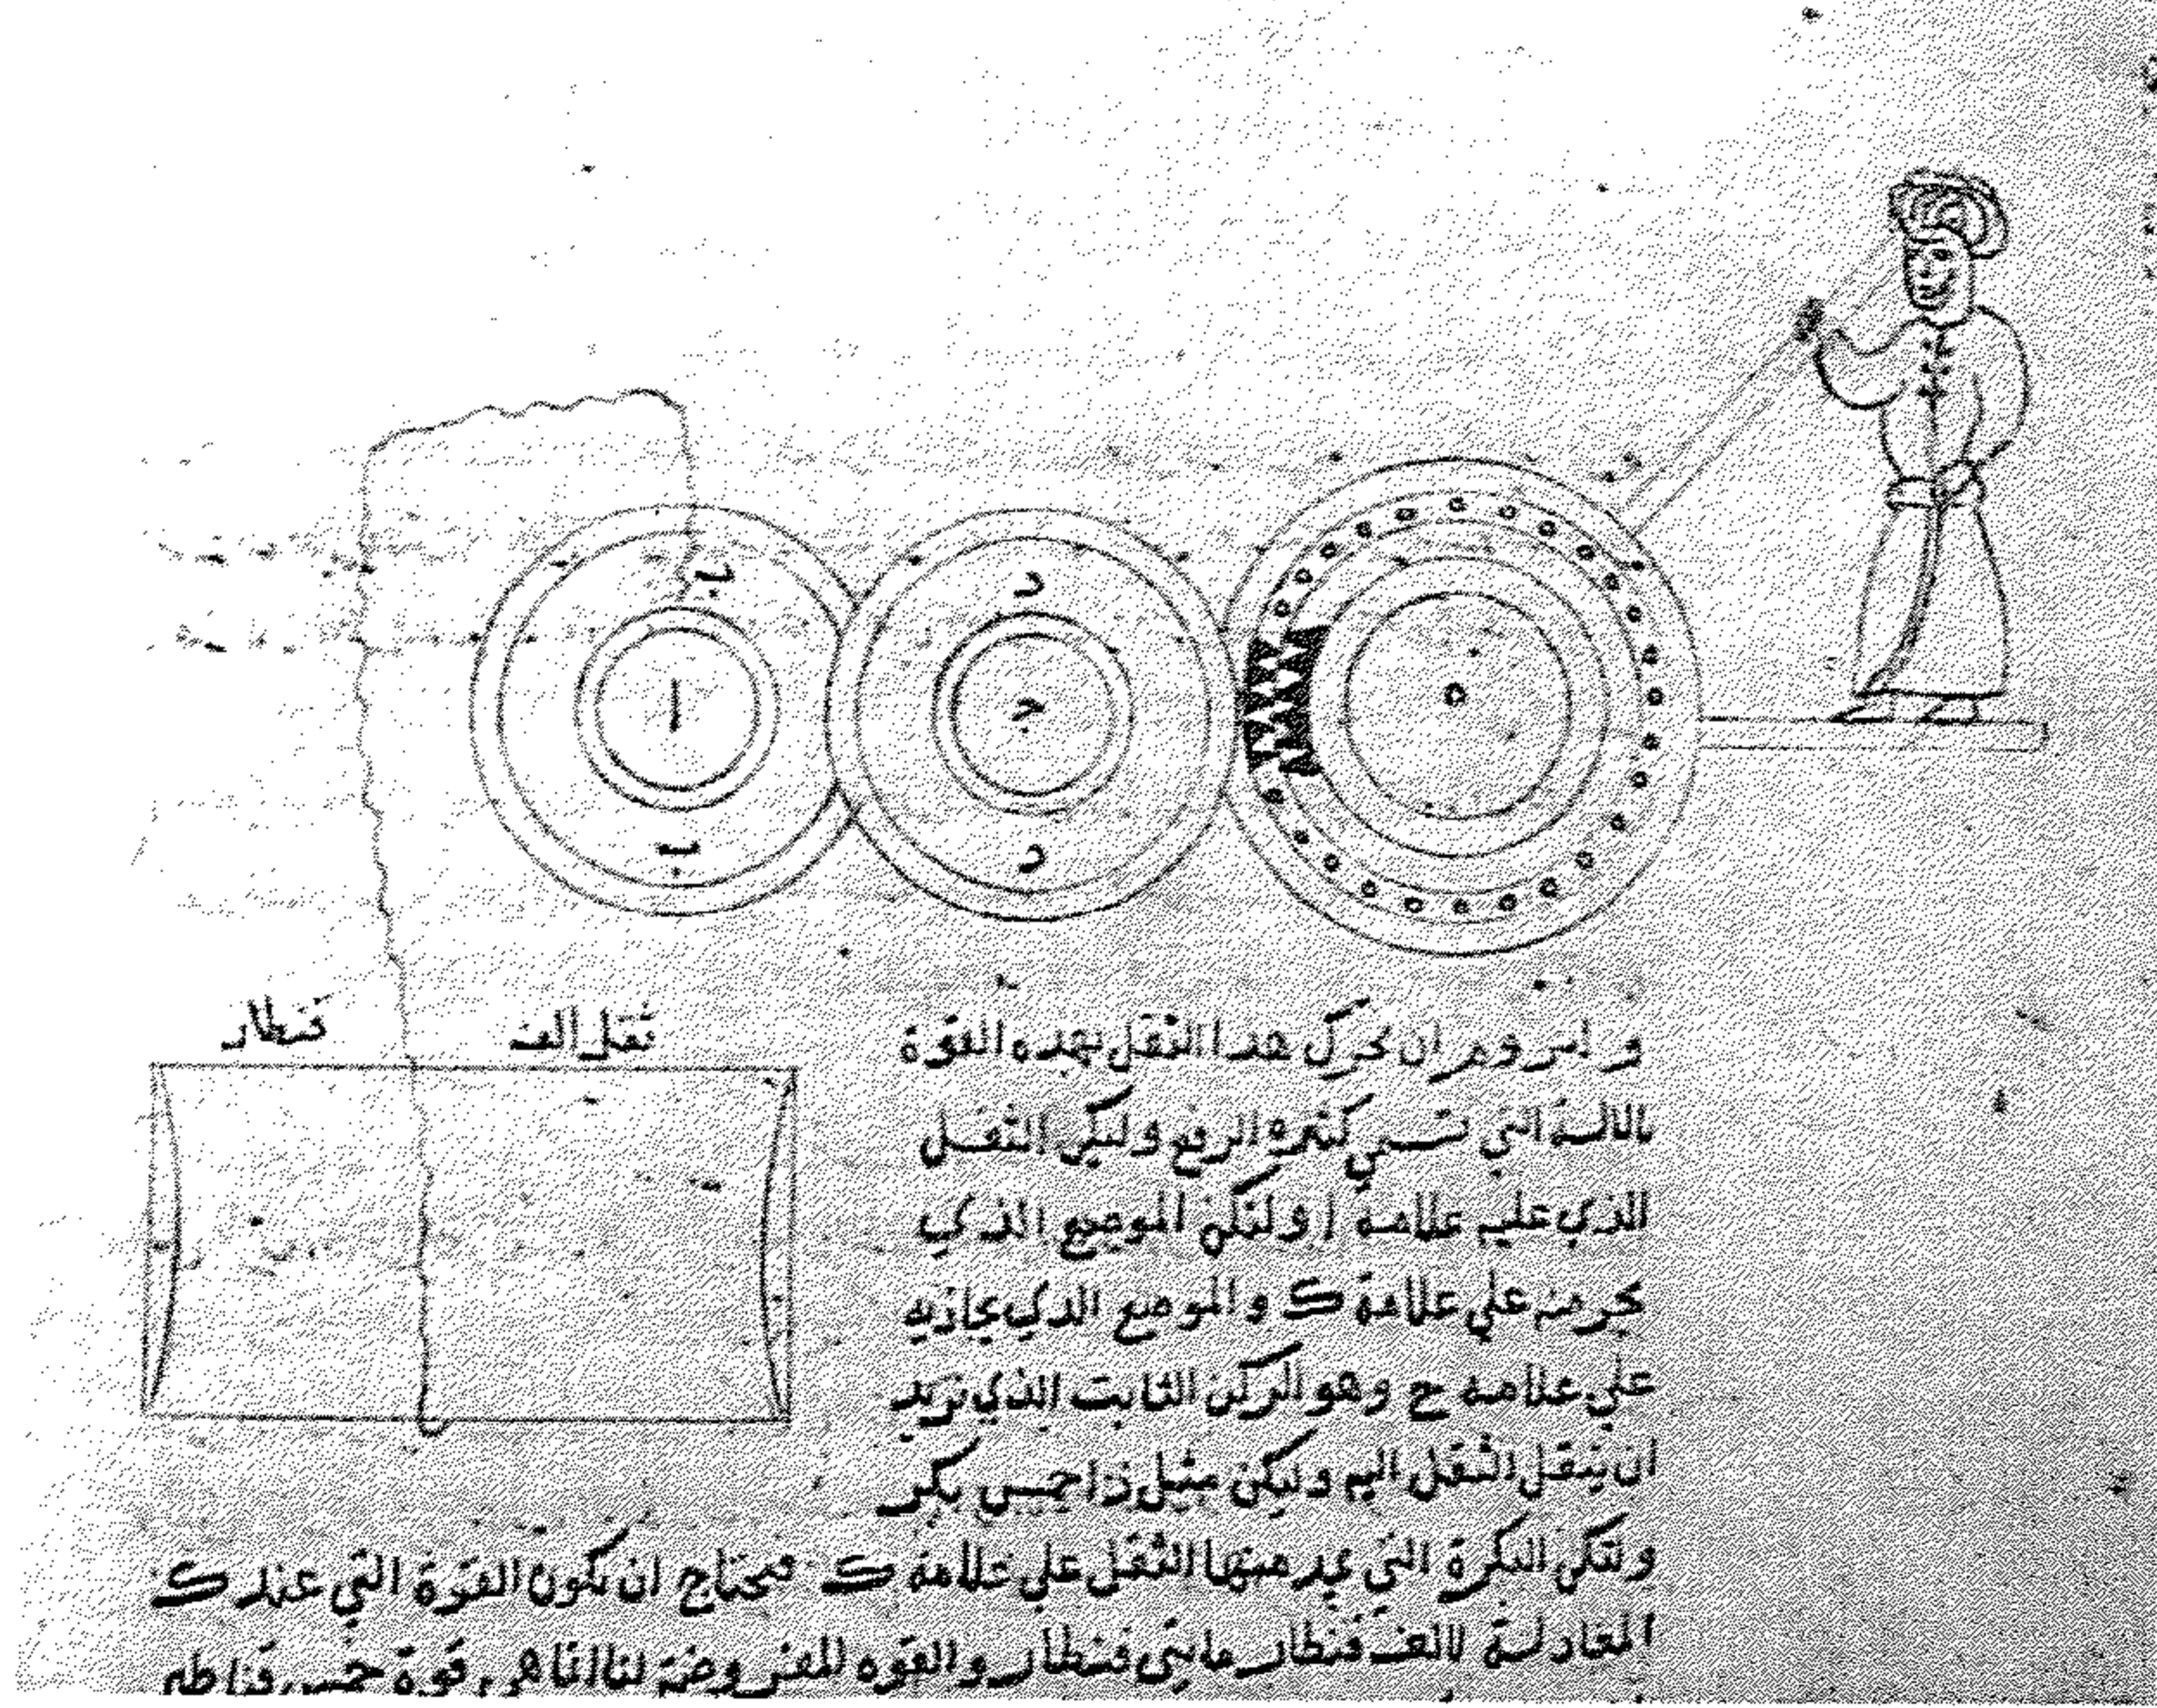 ب
د
ه
ا
ج
ب
د
ثقل الف قنطار
ولنروم ان نحرك هدا الثقل بهده القوة
بالالة التي تسمي كثيره الرفع وليكن الثقل
الذي عليه علامة ا ولتكن الموضع الذي
يجر منه علي علامة ك والموضع الدي يحاذيه
علي علامه ح وهو الركن الثابت الذي نريد
ان ينقل الثقل اليه وليكن مثيل زا خمس بكر
ولتكن البكرة التي يمد منها الثقل علي علامة ك فتحتاج ان تكون القوة التي عند ك
المعادلة لالف قنطار مايتي قنطار والقوه المفروضة لنا انما هي قوة خمس قناطير